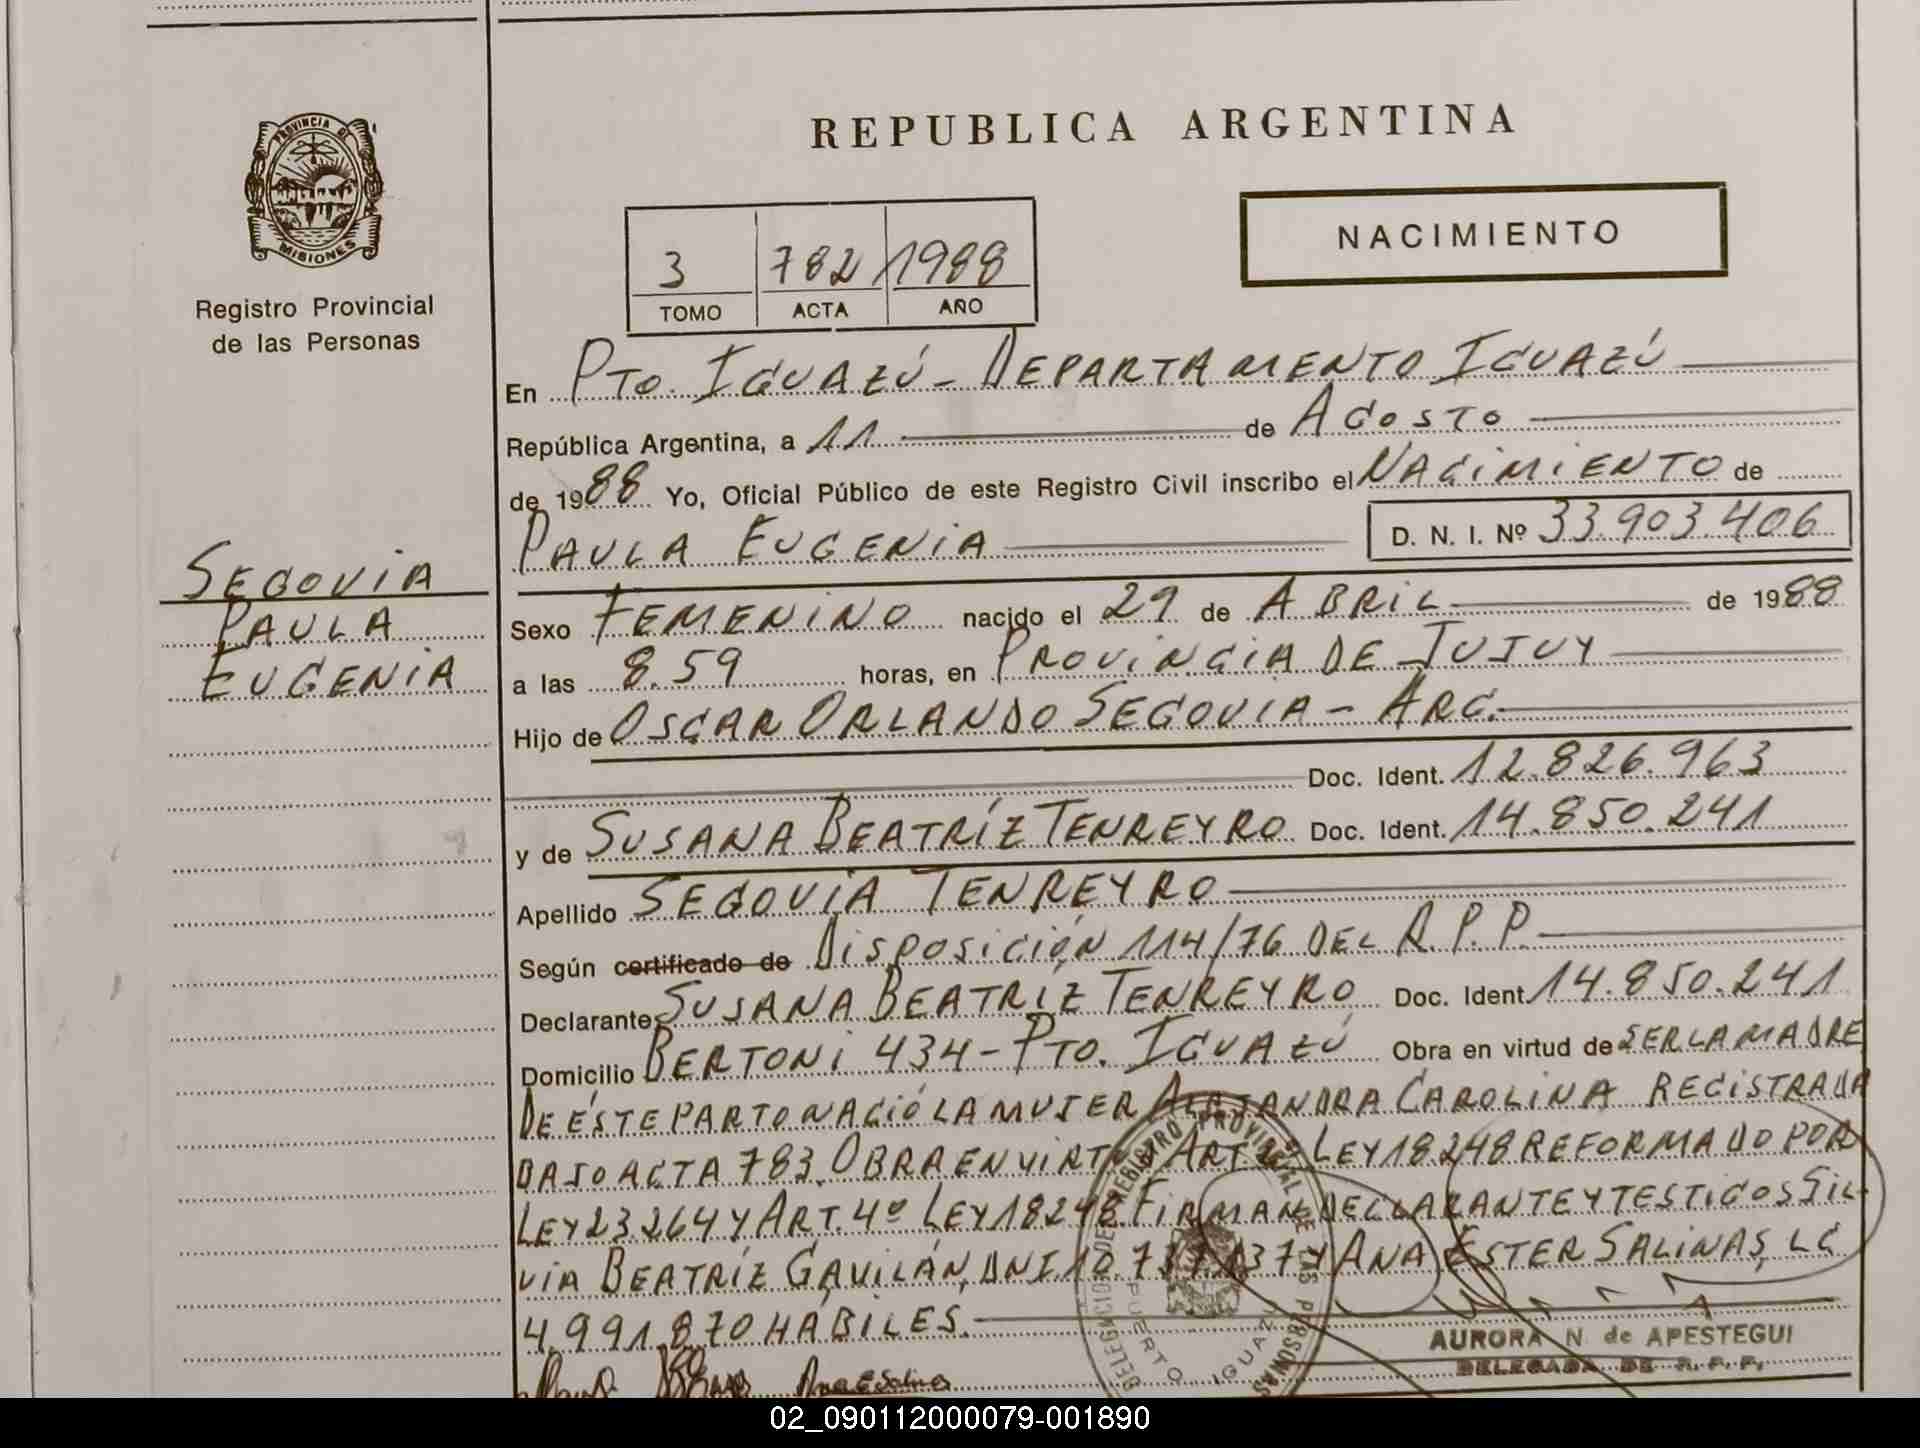 PROVINCIA DE
MISIONES
Registro Provincial
de las Personas
SEGOVIA
PAULA
EUGENIA
REPUBLICA ARGENTINA
NACIMIENTO
3 782 1988
TOMO ACTA AÑO
En PTO. IGUAZÚ - DEPARTAMENTO IGUAZÚ
República Argentina, a 11 de AGOSTO
de 1988 Yo, Oficial Público de este Registro Civil inscribo el NACIMIENTO de
PAULA EUGENIA D. N. I. Nº 33.903.406
Sexo FEMENINO nacido el 29 de ABRIL de 1988
a las 8.59 horas, en PROVINCIA DE JUJUY
Hijo de OSCAR ORLANDO SEGOVIA - ARG.
Doc. Ident. 12.826.963
y de SUSANA BEATRÍZ TENREYRO Doc. Ident. 14.850.241
Apellido SEGOVIA TENREYRO
Según certificado de DISPOSICIÓN 114/76 DEL R.P.P.
Declarante SUSANA BEATRÍZ TENREYRO Doc. Ident. 14.850.241
Domicilio BERTONI 434 - PTO. IGUAZÚ Obra en virtud de SER LA MADRE
DE ÉSTE PARTO NACIÓ LA MUJER ALEJANDRA CAROLINA REGISTRADA
BAJO ACTA 783. OBRA EN VIRTUD ART. LEY 18248 REFORMADO POR
LEY 23.264 Y ART. 4º LEY 18248. FIRMAN DECLARANTE Y TESTIGOS SIL-
VIA BEATRÍZ GAVILÁN, DNI Y ANA ESTER SALINAS, LC
4.991.870 HÁBILES.
AURORA N de APESTEGUI
DELEGADA DE R. P. P.
DELEGACION DE REGISTRO PROVINCIAL DE LAS PERSONAS
PUERTO IGUAZU
Ana E Salinas
02_090112000079-001890